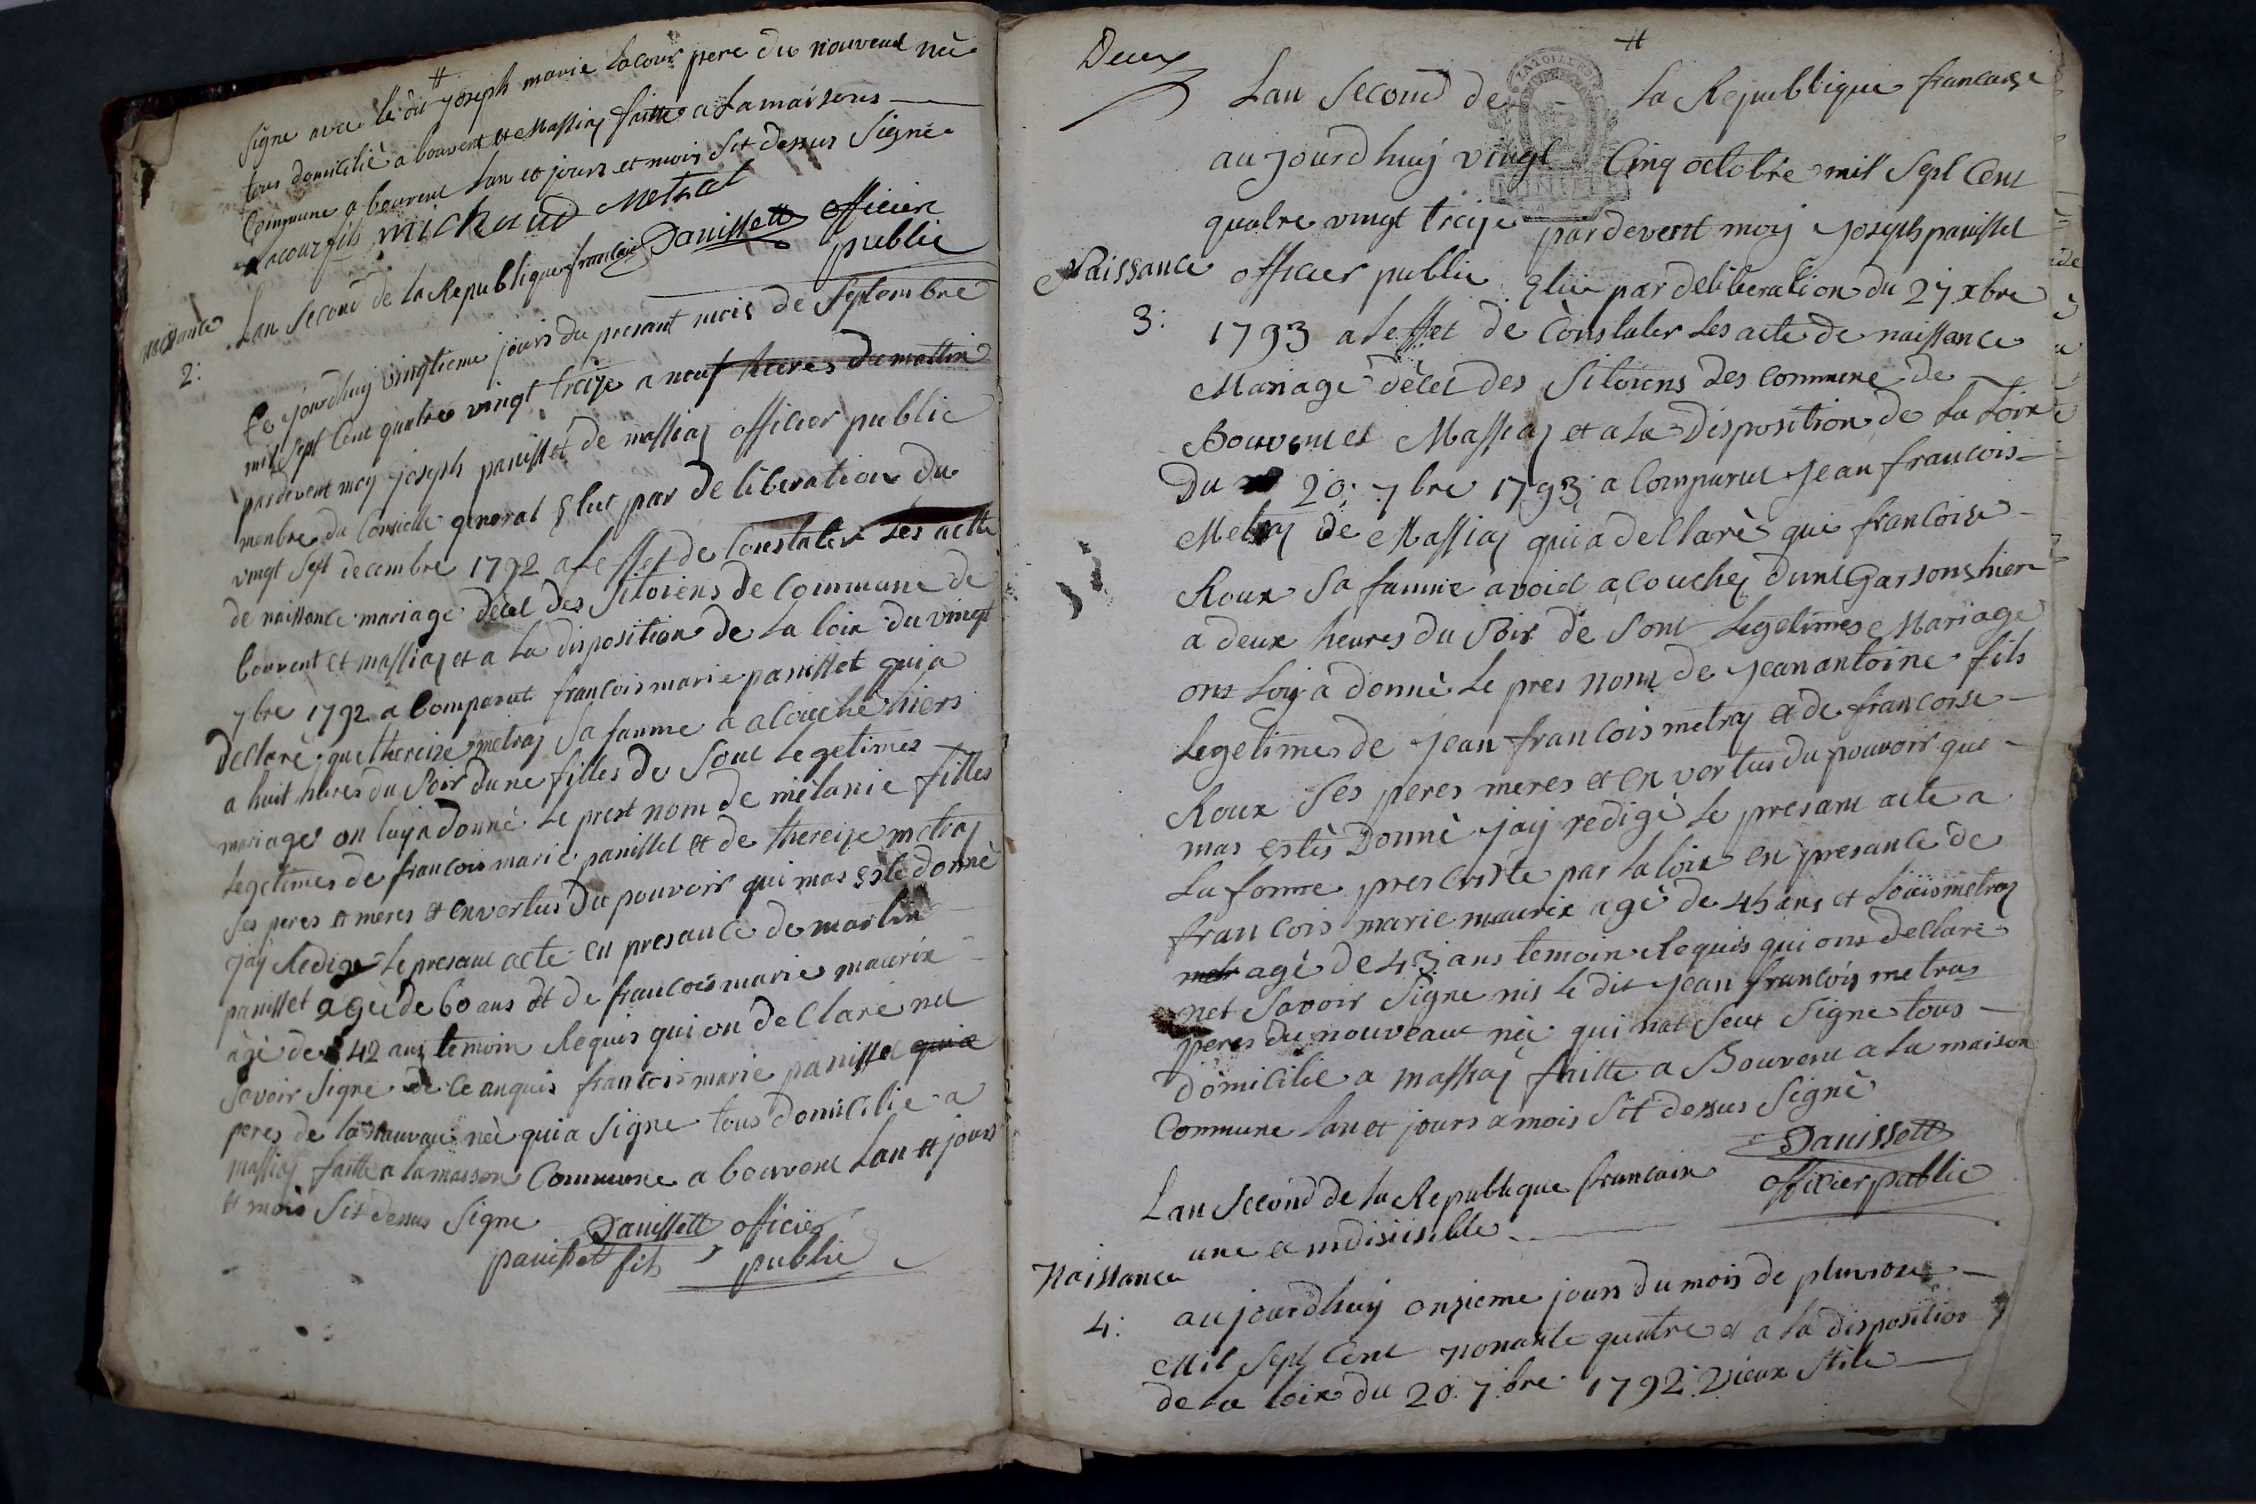 signe avec le dit joseph marie Lacour pere du nouveaux nè
tous domicilié a bouvent et Massiaj faitte a La maisons
Commune a bouvent Lan et jours et mois Sit dessus Signè
Lacour fils michaud Metral
Lan Second de La Republique francaise Panissett officier
public
naissance
2:
Ce jourdhuy vingtieme jours du presant mois de Septembre
mil Sept Cent quatre vingt treize a neuf heures du mattin
pardevent moy joseph panisset de massiaj officier public
menbre du Conseille general Elut par deliberation du
vingt Sept decembre 1792 a Leffet de Constater Les actte
de naissance mariage décet des Sitoiens de Commune de
bouvent et massiaj et a La disposition de La loix du vingt
7bre 1792 a Comparut francois marie panisset qui a
declarè que thereize metraj Sa famme a acouchè hiers
a huit hures du Soir dune filles de Sont Legetimes
mariage on luy a donnè Le prest nom de mélanie filles
Legetimes de francois marie panisset et de thereize metraj
Ses peres et meres et en vertus du pouvoir qui mas estè donnè
jaÿ Redige Le presant acte en presance de martin
panisset agè de 60 ans et de francois marie maurix
àgè de 42 ans temoin Requis qui on declarè net
Savoir Signe de Ce anquis francois marie panisset qui a
peres de la nauvau nèe qui a Signe tous domicilie a
massiaj faitte a la maison Commune a bouvent Lan et jours
et mois Sit dessus Signe Panissett officier
panisset fils public
Deux
Lan Second de La Republique francaise
aujourdhuy vingt Cinq octobre mil Sept Cent
quatre vingt treize pardevent moy joseph panisset
Naissance
3:
officier public Elue par deliberation du 27 xbre
1793 a Leffet de Constater Les acte de naissance
Mariage dècet des Sitoiens des Commune de
Bouvent et Massiaj et a La Disposition de La Loix
Du 20: 7bre 1793 a Comparut Jean francois
Metraj de Massiaj qui a dellarès que francoise
Roux Sa famme avoid acouchez dunt Garsons hier
a deux heures du Soir de Sont Legetimes Mariage
ont Luy à donnè Le pres nom de jean antoine fils
Legetimes de jean francois metraj et de francoise
Roux Ses peres meres et en vertus du pouvoir qui
mas estès Donnè jaÿ redigè Le presant acte a
La forme prescritte par La loix en presance de
francois marie maurix agè de 45 ans et Loüis metraj
metr agè de 43 ans temoin Requis qui ons declarè
net Savoir Signe nis Le dit jean francois metras
peres du nouveaux nèe qui nat Seut Signe tous
domicilie a massiaj faitte a Bouvent a La maison
Commune Lan et jours a mois Sit dessus Signè
Panissett
officier public
Lan Second de La Republique francaise
une et indisisible
Naissance
4:
aujourdhuy onzieme jours du mois de pluviose
Mil Sept Cent nonante quattre et a La disposition
de La loix du 20: 7bre 1792: Vieux Stile